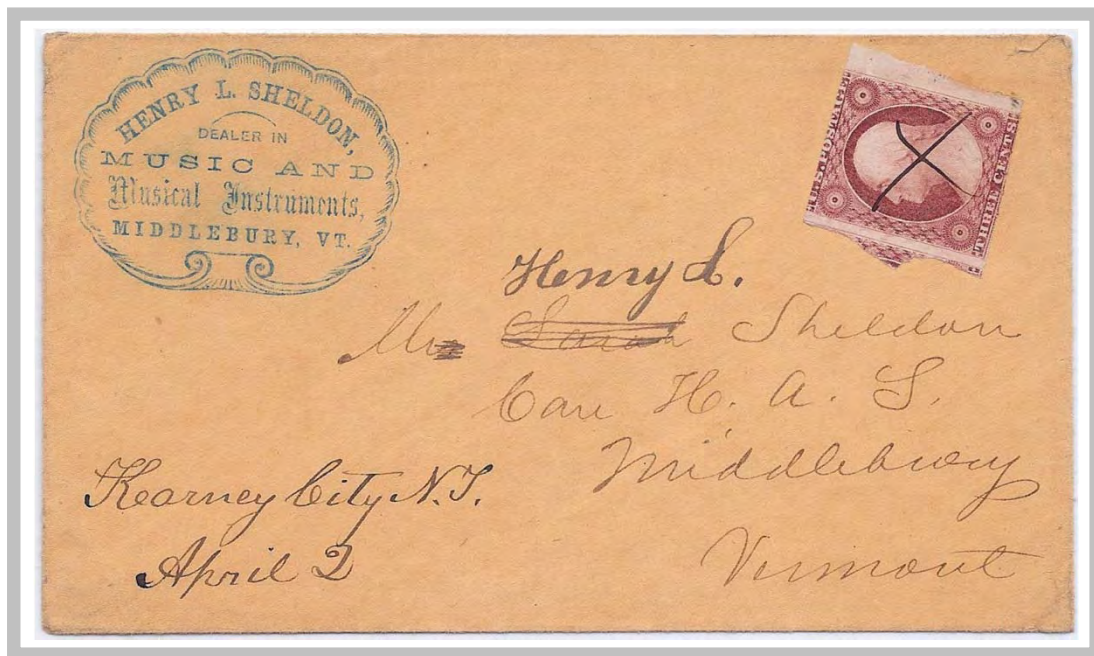 HENRY L. SHELDON,
DEALER IN
MUSIC AND
Musical Instruments,
MIDDLEBURY, VT.
U.S. POSTAGE
THREE CENTS
Henry L.
Mrs Sarah Sheldon
Care H. A. S.
Middlebury
Vermont
Kearney City N.T.
April 2